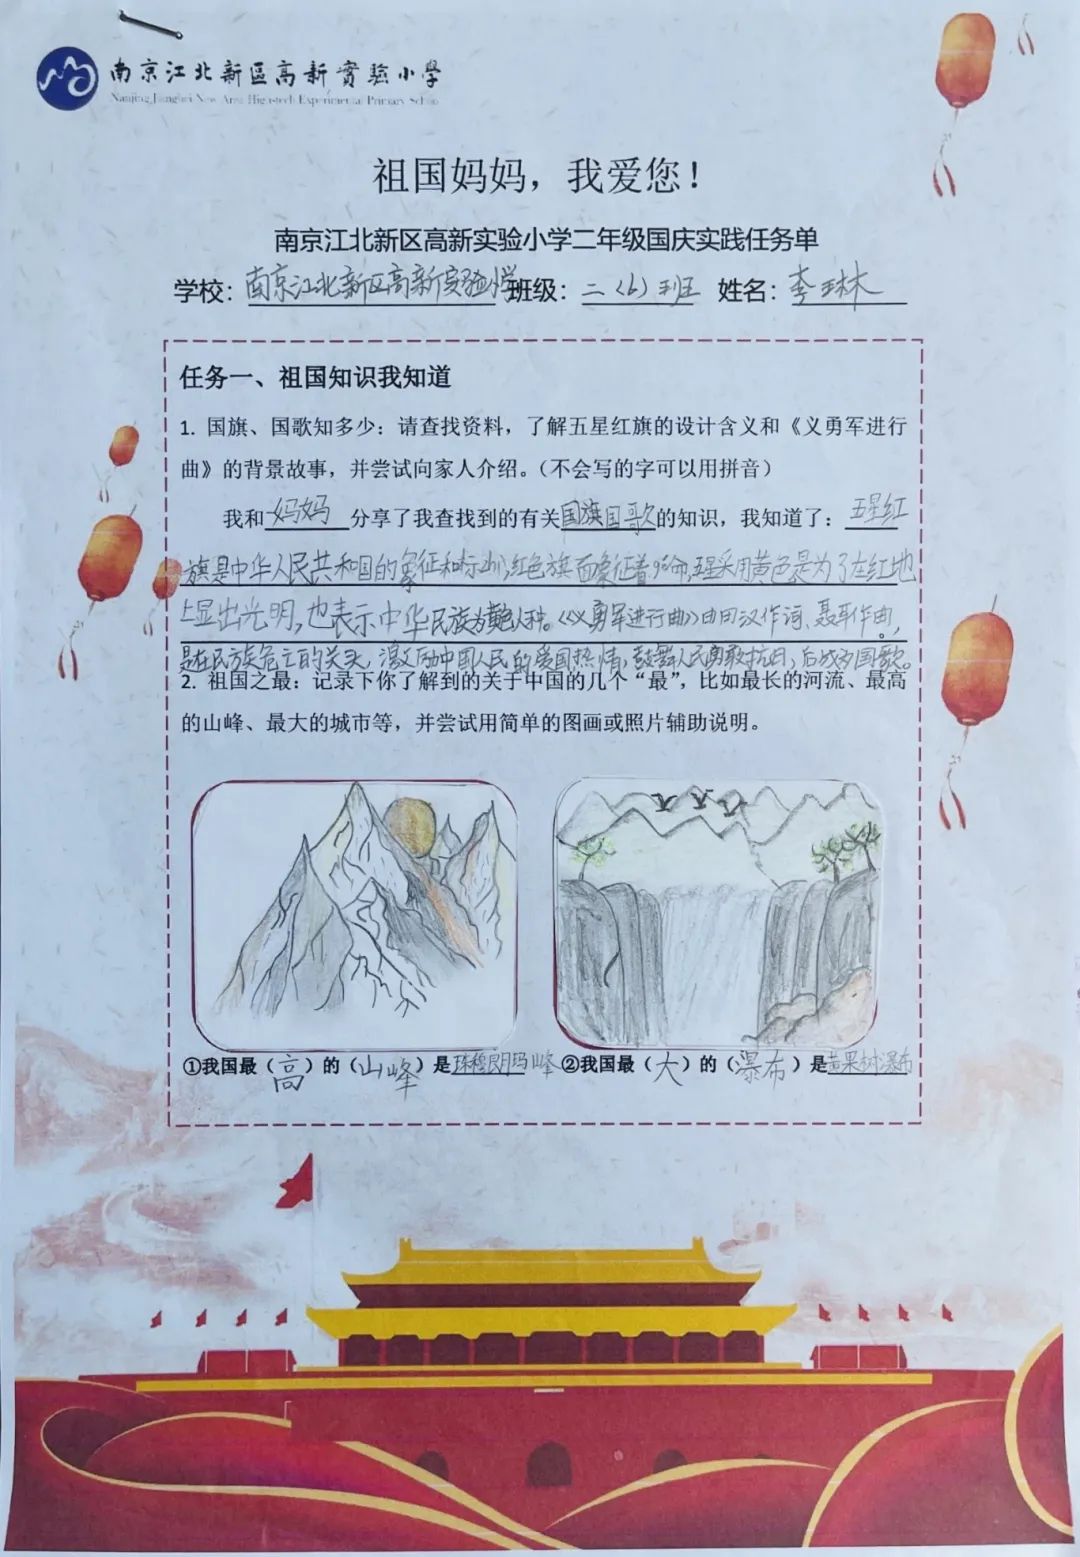 南京江北新區高新實驗小學
Nanjing Jiangbei New Area High-tech Experimental Primary School
祖国妈妈，我爱您！
南京江北新区高新实验小学二年级国庆实践任务单
学校：南京江北新区高新实验小学 班级：二（6）班 姓名：李琳
任务一、祖国知识我知道
1. 国旗、国歌知多少：请查找资料，了解五星红旗的设计含义和《义勇军进行
曲》的背景故事，并尝试向家人介绍。（不会写的字可以用拼音）
我和妈妈分享了我查找到的有关国旗国歌的知识，我知道了：五星红
旗是中华人民共和国的象征和标志，红色旗面象征着革命，五星采用黄色是为了在红地
上显出光明，也表示中华民族为黄色人种。《义勇军进行曲》由田汉作词、聂耳作曲，
是在民族危亡的关头，激励中国人民的爱国热情，鼓舞人民勇敢抗日，后成为国歌。
2. 祖国之最：记录下你了解到的关于中国的几个“最”，比如最长的河流、最高
的山峰、最大的城市等，并尝试用简单的图画或照片辅助说明。
①我国最（高）的（山峰）是珠穆朗玛峰 ②我国最（大）的（瀑布）是黄果树瀑布